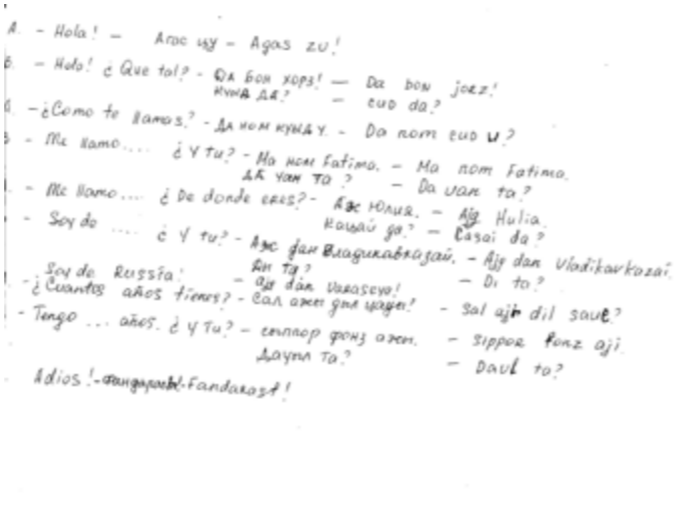 A. - Hola! - Агас цу - Agas zu!
- Hola! ¿ Que tal? - Да бон хорз! - Da bon jorz!
кунд да? - cud da?
- ¿Como te llamas? - Да ном кунд у. - Da nom cud u?
- Me llamo.... ¿ Y tu? - Ма ном Fatima. - Ma nom Fatima.
Да уан та? - Da uan ta?
- Me llamo... ¿ De donde eres? - Аж Юлия. - Aj Hulia.
Кацай да? - Cazai da?
- Soy de .... ¿ Y tu? - Аж дан Владикавказай. - Aj dan Vladikavkazai.
Ди та? - Di ta?
Soy de Russia! - aj dan
- ¿Cuantos años tienes? - Сал ажи дил цауи! - Sal aji dil saue?
- Tengo ... años. ¿ Y tu? - сиппор фонз ажи. - sippor fonz aji.
Дауил та? - Daul ta?
Adios! - - Fandarast!